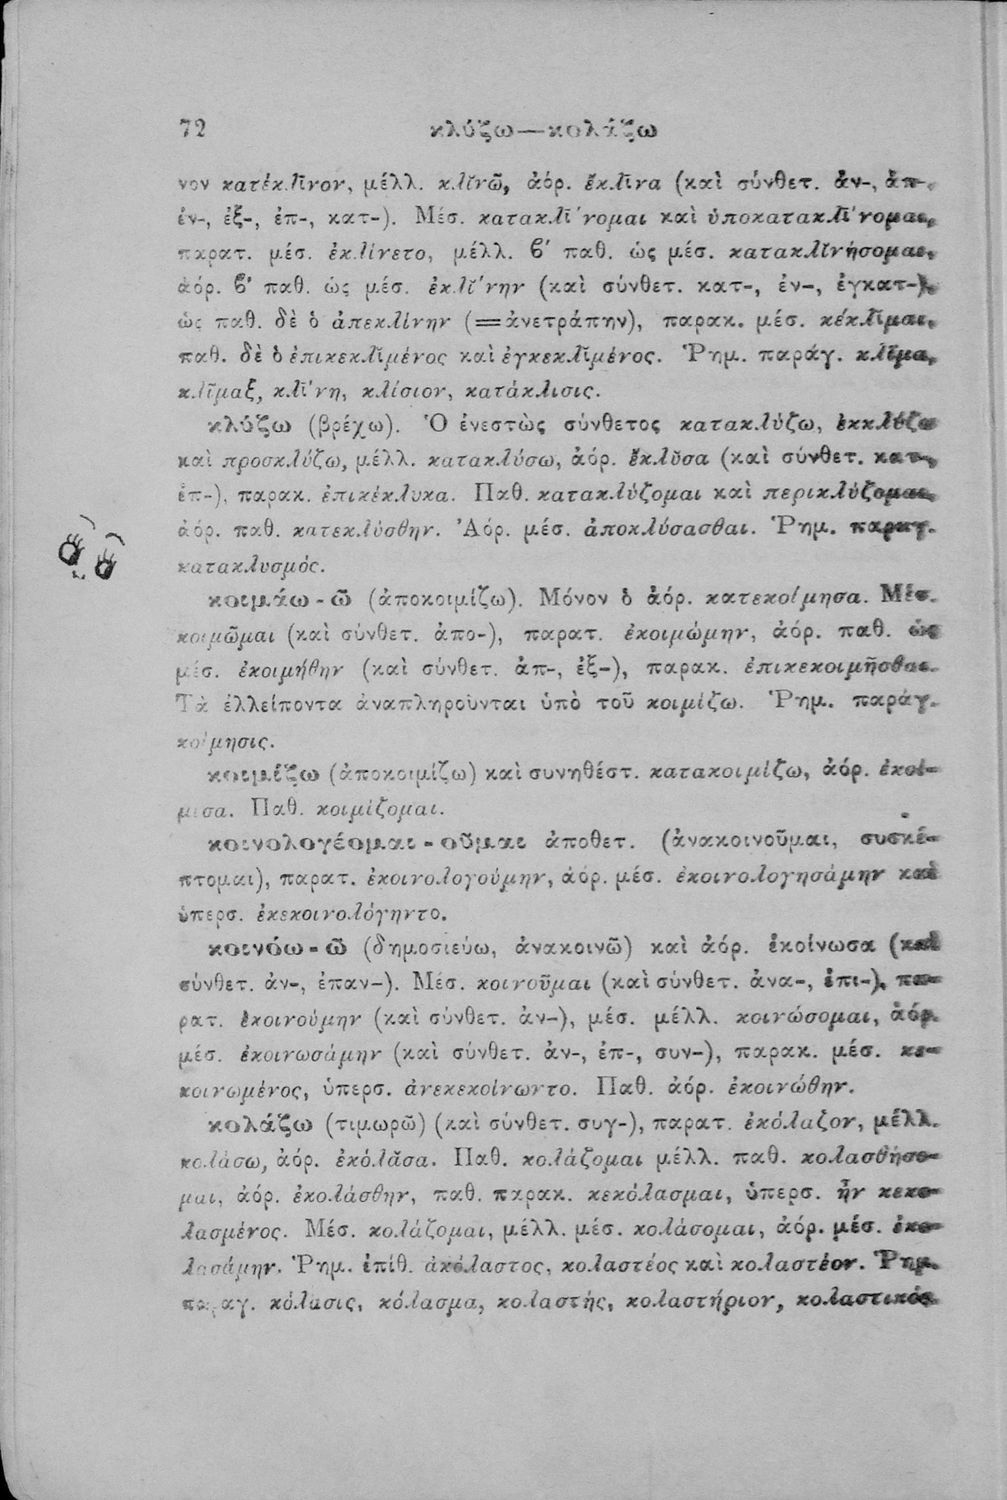 72 κλύζω—κολάζω
νον κατέκλῑνον, μέλλ. κλῐνῶ, ἀόρ. ἔκλῑνα (καὶ σύνθετ. ἀν-, ἀπ-,
ἐν-, ἐξ-, ἐπ-, κατ-). Μέσ. κατακλῑ́νομαι καὶ ὑποκατακλῑ́νομαι,
παρατ. μέσ. ἐκλίνετο, μέλλ. β' παθ. ὡς μέσ. κατακλῐνήσομαι,
ἀόρ. β' παθ. ὡς μέσ. ἐκλῐ́νην (καὶ σύνθετ. κατ-, ἐν-, ἐγκατ-),
ὡς παθ. δὲ ὁ ἀπεκλίνην (=ἀνετράπην), παρακ. μέσ. κέκλῐμαι,
παθ. δὲ ὁ ἐπικεκλῐμένος καὶ ἐγκεκλῐμένος. Ῥημ. παράγ. κλῖμα,
κλῖμαξ, κλῑ́νη, κλίσιον, κατάκλισις.
κλύζω (βρέχω). Ὁ ἐνεστὼς σύνθετος κατακλύζω, ἐκκλύζω
καὶ προσκλύζω, μέλλ. κατακλύσω, ἀόρ. ἔκλῠσα (καὶ σύνθετ. κατ-,
ἐπ-), παρακ. ἐπικέκλυκα. Παθ. κατακλύζομαι καὶ περικλύζομαι,
ἀόρ. παθ. κατεκλύσθην. Ἀόρ. μέσ. ἀποκλύσασθαι. Ῥημ. παραγ.
κατακλυσμός.
κοιμάω-ῶ (ἀποκοιμίζω). Μόνον ὁ ἀόρ. κατεκοίμησα. Μέσ.
κοιμῶμαι (καὶ σύνθετ. ἀπο-), παρατ. ἐκοιμώμην, ἀόρ. παθ. ὡς
μέσ. ἐκοιμήθην (καὶ σύνθετ. ἀπ-, ἐξ-), παρακ. ἐπικεκοιμῆσθαι.
Τὰ ἐλλείποντα ἀναπληροῦνται ὑπὸ τοῦ κοιμίζω. Ῥημ. παράγ.
κοίμησις.
κοιμίζω (ἀποκοιμίζω) καὶ συνηθέστ. κατακοιμίζω, ἀόρ. ἐκοί-
μισα. Παθ. κοιμίζομαι.
κοινολογέομαι-οῦμαι ἀποθετ. (ἀνακοινοῦμαι, συσκέ-
πτομαι), παρατ. ἐκοινολογούμην, ἀόρ. μέσ. ἐκοινολογησάμην καὶ
ὑπερσ. ἐκεκοινολόγηντο.
κοινόω-ῶ (δημοσιεύω, ἀνακοινῶ) καὶ ἀόρ. ἐκοίνωσα (καὶ
σύνθετ. ἀν-, ἐπαν-). Μέσ. κοινοῦμαι (καὶ σύνθετ. ἀνα-, ἐπι-), πα-
ρατ. ἐκοινούμην (καὶ σύνθετ. ἀν-), μέσ. μέλλ. κοινώσομαι, ἀόρ.
μέσ. ἐκοινωσάμην (καὶ σύνθετ. ἀν-, ἐπ-, συν-), παρακ. μέσ. κε-
κοινωμένος, ὑπερσ. ἀνεκεκοίνωντο. Παθ. ἀόρ. ἐκοινώθην.
κολάζω (τιμωρῶ) (καὶ σύνθετ. συγ-), παρατ. ἐκόλαζον, μέλλ.
κολάσω, ἀόρ. ἐκόλᾰσα. Παθ. κολάζομαι μέλλ. παθ. κολασθήσο-
μαι, ἀόρ. ἐκολάσθην, παθ. παρακ. κεκόλασμαι, ὑπερσ. ἦν κεκο-
λασμένος. Μέσ. κολάζομαι, μέλλ. μέσ. κολάσομαι, ἀόρ. μέσ. ἐκο-
λασάμην. Ῥημ. ἐπίθ. ἀκόλαστος, κολαστέος καὶ κολαστέον. Ῥημ.
παραγ. κόλασις, κόλασμα, κολαστής, κολαστήριον, κολαστικός.